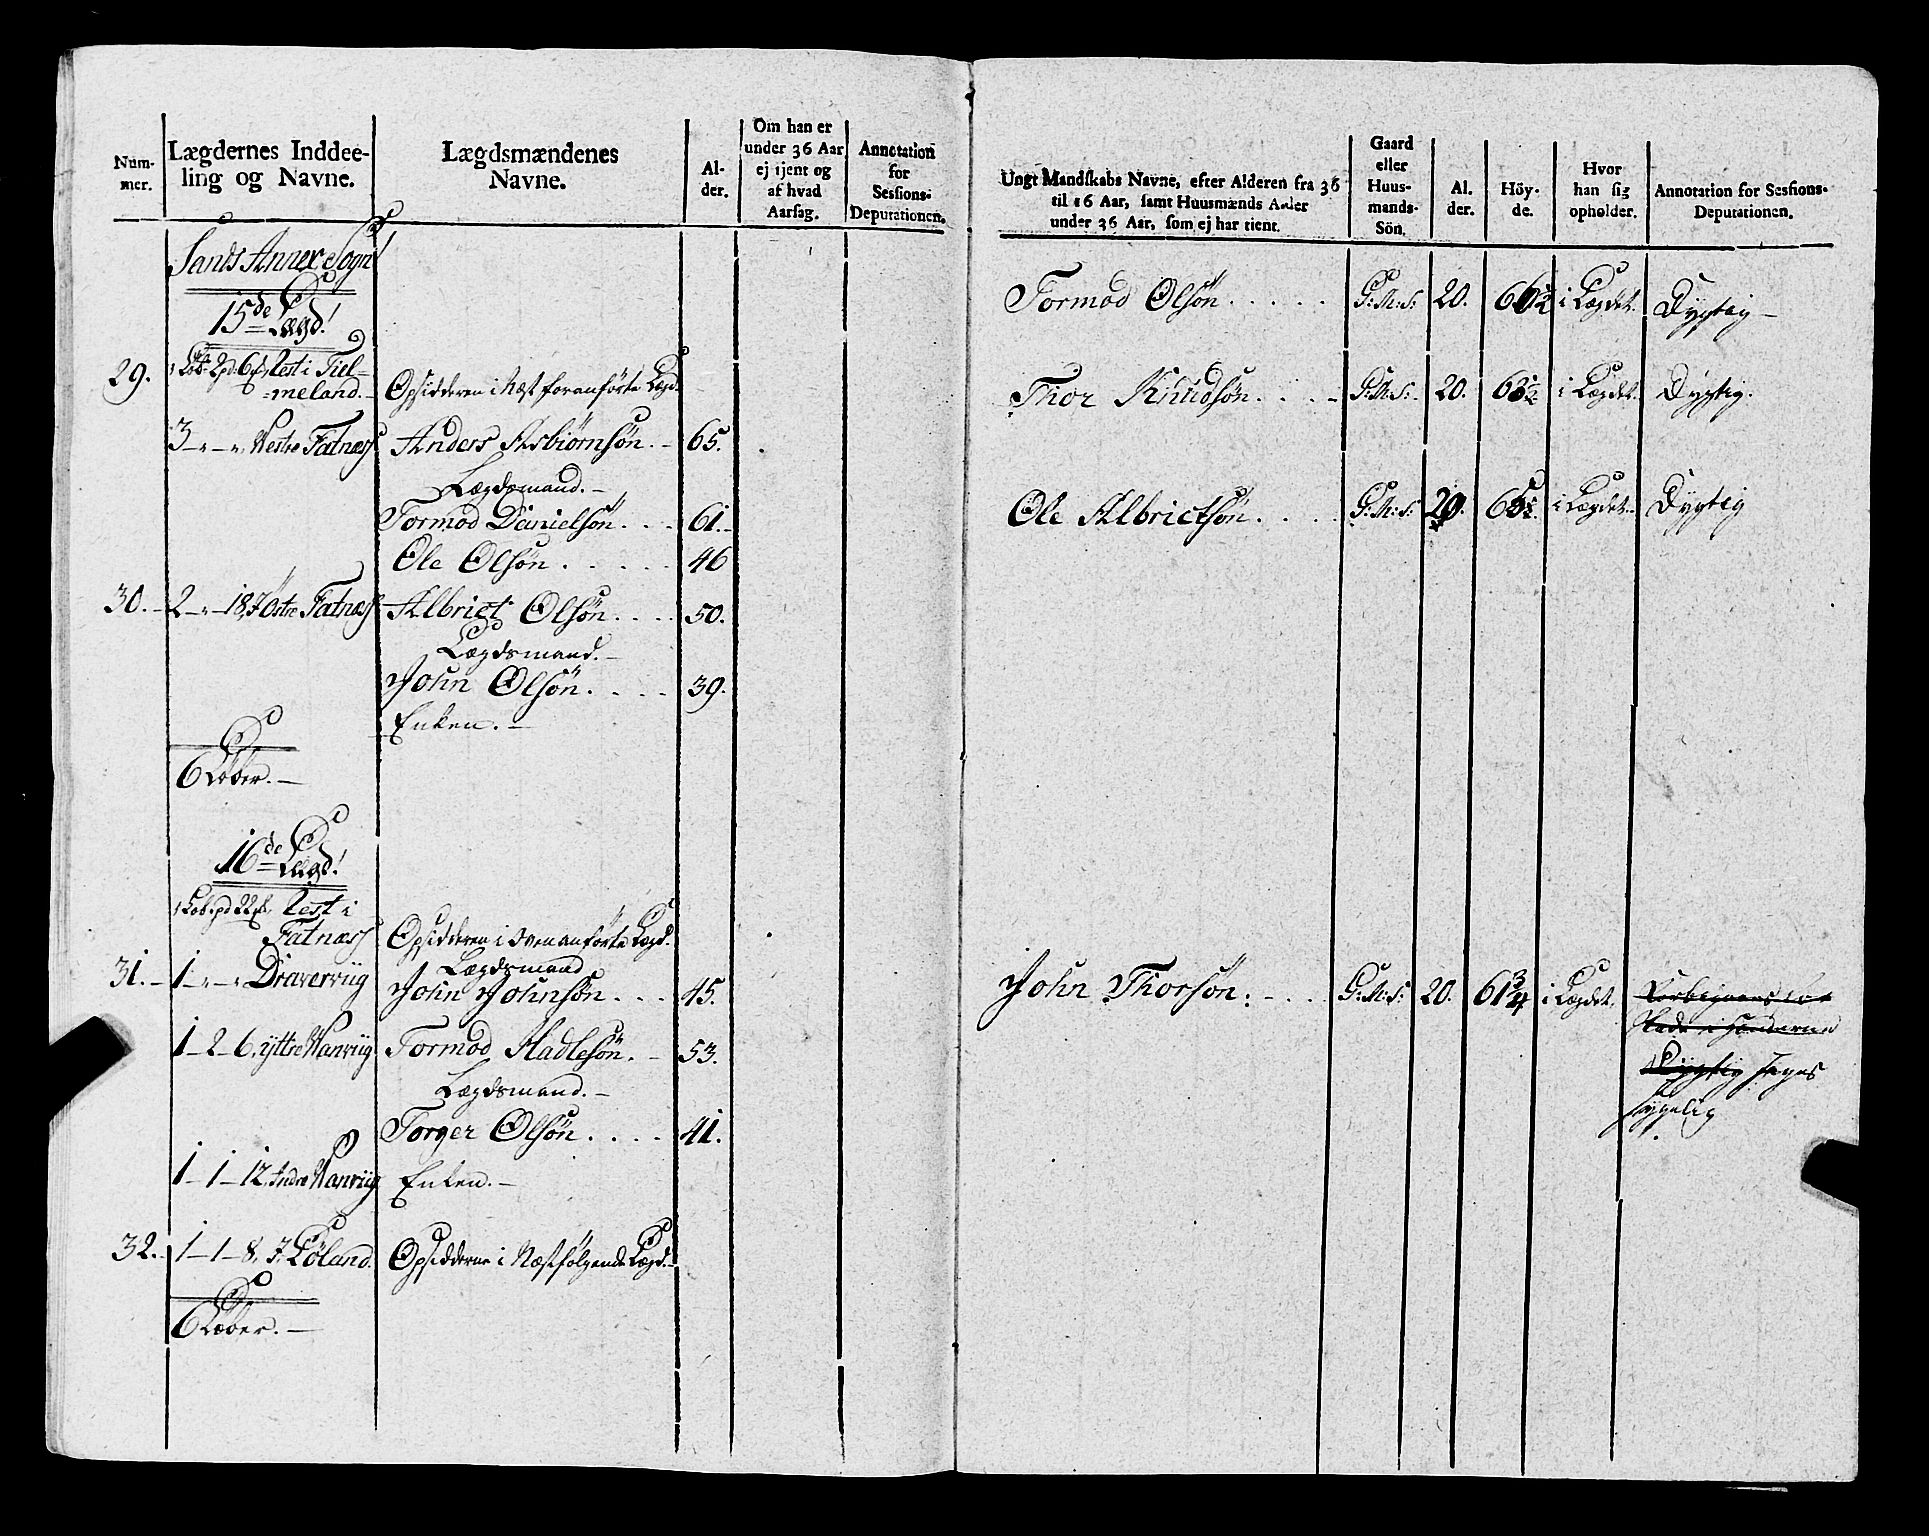 Num-
mer.
Lægdernes Inddee-
ling og Navne.
Lægdsmændenes
Navne.
Al-
der.
Om han er
under 36 Aar
ej tjent og
af hvad
Aarsag.
Annotation
for
Sessions-
Deputationen.
Sands Annex Sogn
15de Lægd!
29. 1 Løb 2pd. 6 , Rest i Tiel-
=meland. Opsidderen i Næst foranførte Lægd.
3 - " - " Westre Fatnæss Anders Asbiørnsøn. - 65.
Lægdsmand. -
Tormod Danielsøn. . . 61. -
Ole Olsøn . . . . . 46
30. - 2 - " - 18, Østre Fatnæss Albrict Olsøn. . . . 50.
Lægdsmand. -
John Olsøn. . . . 39.
Enken. -
6 Løber. -
16de Lægd!
1 Løb. pd 22 , Rest i
Fatnæss Opsidderen i Ovenanførte Lægd.
Lægdsmand
31. - 1 - " - " Draverviig John Johnsøn. . . 45.
1 - 2 - 6, yttre Wanviig Tormod Aadlesøn. - 53.
Lægdsmand. -
Torger Olsøn. . . . 41.
1 - 1 - 12, Indre Wanviig Enken. -
32. - 1 - 1 - 8, J. Løland. Opsidderne i Næstfølgende Lægd. -
6 Løber. -
Ungt Mandskabs Navne, efter Alderen fra 36
til 16 Aar, samt Huusmænds Alder
under 36 Aar, som ej har tient.
Gaard
eller
Huus-
mands-
Sön.
Al.
der.
Höy-
de.
Hvor
han sig
opholder.
Annotation for Sessions-
Deputationen.
Tormod Olsøn . . . . . G: M: S: 20. 60½ i Lægdet. Dygtig -
Thor Knudsøn. . . . - G: M: S: 20. 63½ i Lægdet. Dygtig.
Ole Albrictsøn. . . . G: M: S: 20. 65½. i Lægdet. Dygtig
John Thorsøn: - . . . G: M: S: 20. 61¾ i Lægdet.
Skade i Hænderne
Dygtig siges
sygelig